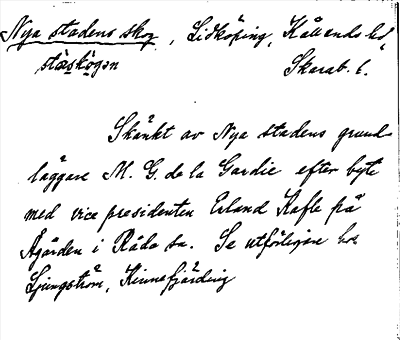 Nya stadens skog, Lidköping, Kållands hd
stæskógen Skarab. l.
Skänkt av Nya stadens grund-
läggare M. G. de la Gardie efter byte
med vice presidenten Erland Kafle på
Ågården i Råda sn. Se utförligare hos
Ljungström, Kinnefjärding